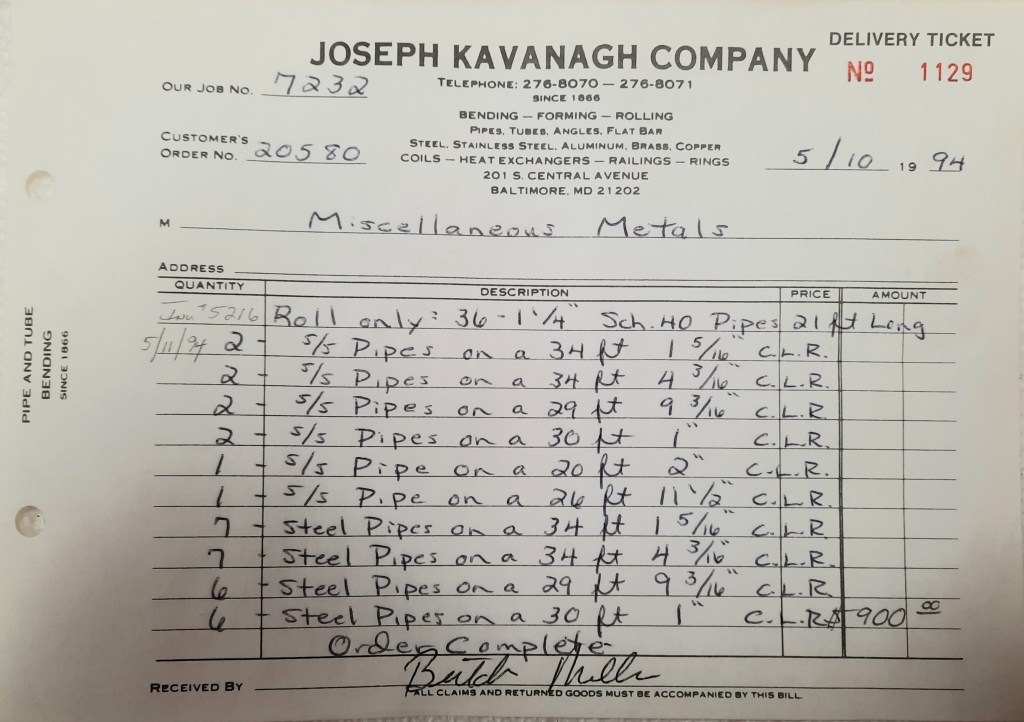 DELIVERY TICKET
JOSEPH KAVANAGH COMPANY
Nº 1129
OUR JOB NO. 7232
TELEPHONE: 276-8070 — 276-8071
SINCE 1866
BENDING — FORMING — ROLLING
PIPES, TUBES, ANGLES, FLAT BAR
CUSTOMER'S
ORDER NO. 20580
STEEL, STAINLESS STEEL, ALUMINUM, BRASS, COPPER
COILS — HEAT EXCHANGERS — RAILINGS — RINGS
201 S. CENTRAL AVENUE
BALTIMORE, MD 21202
5/10 19 94
M Miscellaneous Metals
ADDRESS
QUANTITY DESCRIPTION PRICE AMOUNT
Inv # 5216 Roll only: 36 - 1 1/4" Sch. 40 Pipes 21 ft Long
5/11/94 2 - s/s Pipes on a 34 ft 1 5/16" C.L.R.
2 - s/s Pipes on a 34 ft 4 3/16" C.L.R.
2 - s/s Pipes on a 29 ft 9 3/16" C.L.R.
2 - s/s Pipes on a 30 ft 1" C.L.R.
1 - s/s Pipe on a 20 ft 2" C.L.R.
1 - s/s Pipe on a 26 ft 11 1/2" C.L.R.
7 - Steel Pipes on a 34 ft 1 5/16" C.L.R.
7 - Steel Pipes on a 34 ft 4 3/16" C.L.R.
6 - Steel Pipes on a 29 ft 9 3/16" C.L.R.
6 - Steel Pipes on a 30 ft 1" C.L.R. $900 00
Order Complete
RECEIVED BY Butch Miller
ALL CLAIMS AND RETURNED GOODS MUST BE ACCOMPANIED BY THIS BILL.
PIPE AND TUBE
BENDING
SINCE 1866